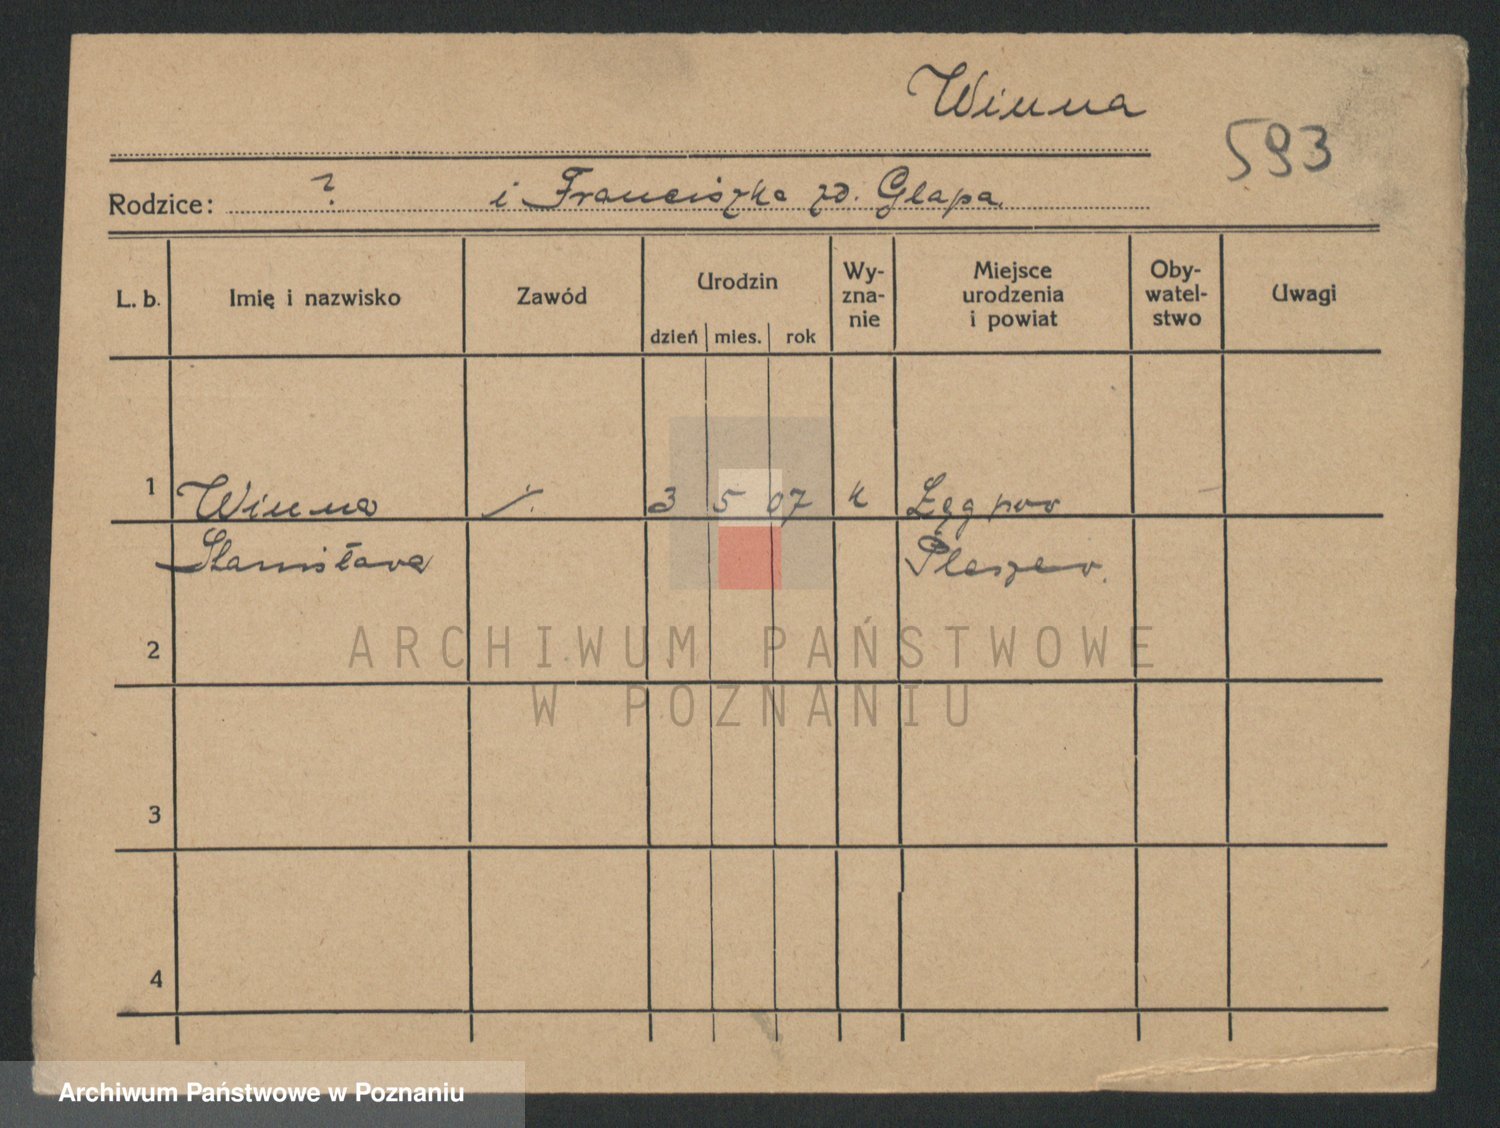 Winna
593
Rodzice: ? i Franciszka zd. Glapa.
L. b. Imię i nazwisko Zawód Urodzin dzień mies. rok Wy-zna-nie Miejsce urodzenia i powiat Oby-watel-stwo Uwagi
1 Winna ./. 3 5 07 k Łęg pow
Stanisława Pleszew.
2
3
4
ARCHIWUM PAŃSTWOWE
W POZNANIU
Archiwum Państwowe w Poznaniu